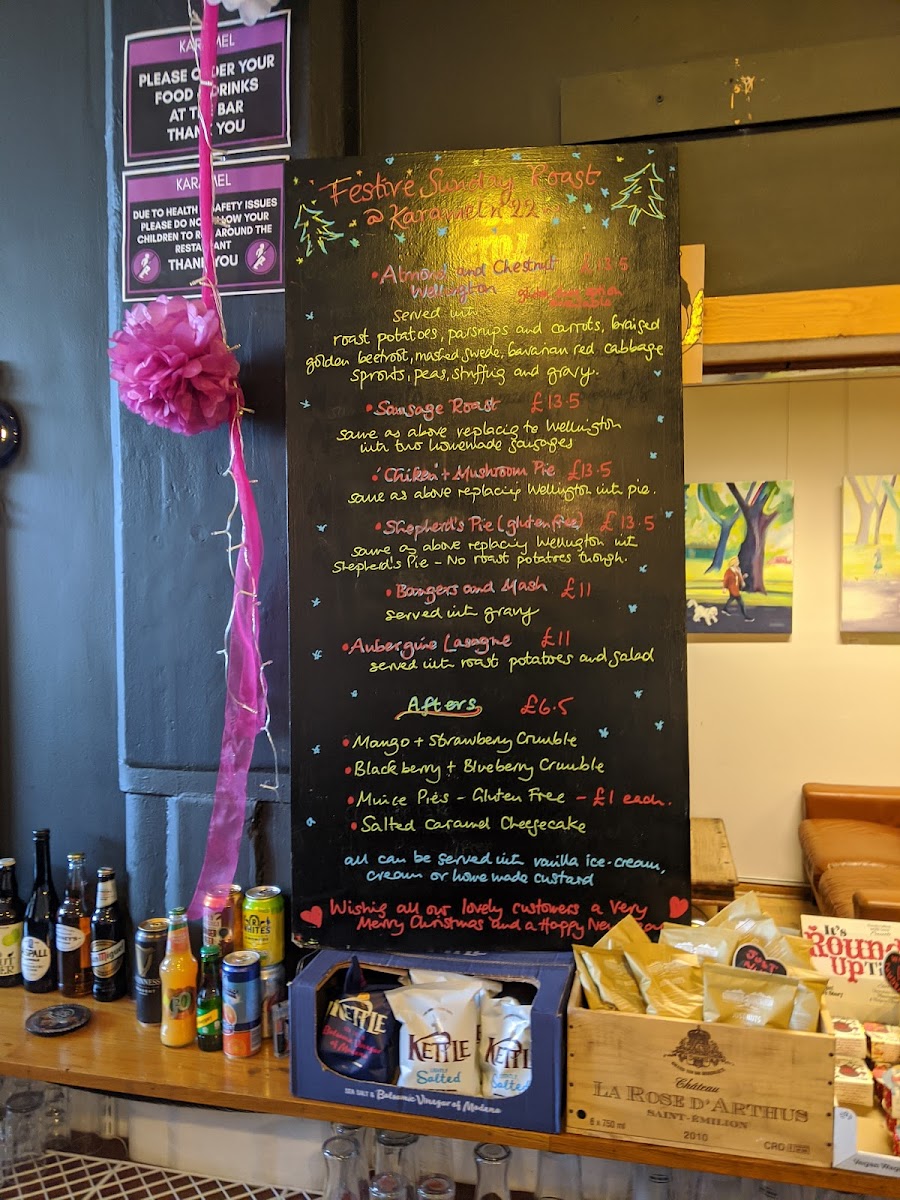 KARAMEL
PLEASE ORDER YOUR
FOOD & DRINKS
AT THE BAR
THANK YOU
KARAMEL
DUE TO HEALTH & SAFETY ISSUES
PLEASE DO NOT ALLOW YOUR
CHILDREN TO RUN AROUND THE
RESTAURANT
THANK YOU
Festive Sunday Roast
@ Karamel n°22
• Almond and Chestnut £13.5
Wellington gluten free option
available
served with
roast potatoes, parsnips and carrots, braised
golden beetroot, mashed swede, bavarian red cabbage
sprouts, peas, stuffing and gravy.
• Sausage Roast £13.5
same as above replacing to Wellington
with two homemade sausages
• 'Chikken' + Mushroom Pie £13.5
same as above replacing Wellington with pie.
• Shepherd's Pie (gluten free) £13.5
same as above replacing Wellington with
Shepherd's Pie - No roast potatoes though.
• Bangers and Mash £11
served with gravy
• Aubergine Lasagne £11
served with roast potatoes and salad
Afters £6.5
• Mango + Strawberry Crumble
• Blackberry + Blueberry Crumble
• Mince Pies - Gluten Free - £1 each.
• Salted Caramel Cheesecake
all can be served with vanilla ice-cream,
cream or home made custard
Wishing all our lovely customers a Very
Merry Christmas and a Happy New Year
KETTLE
Sea Salt &
Balsamic Vinegar
of Modena
KETTLE
LIGHTLY
Salted
KETTLE
LIGHTLY
Salted
SEA SALT & Balsamic Vinegar of Modena
Château
LA ROSE D'ARTHUS
SAINT-ÉMILION
6 x 750 ml
2010
CRD
It's
Round
Up Ti
NUTS
WHITES
GUINNESS
Miguel